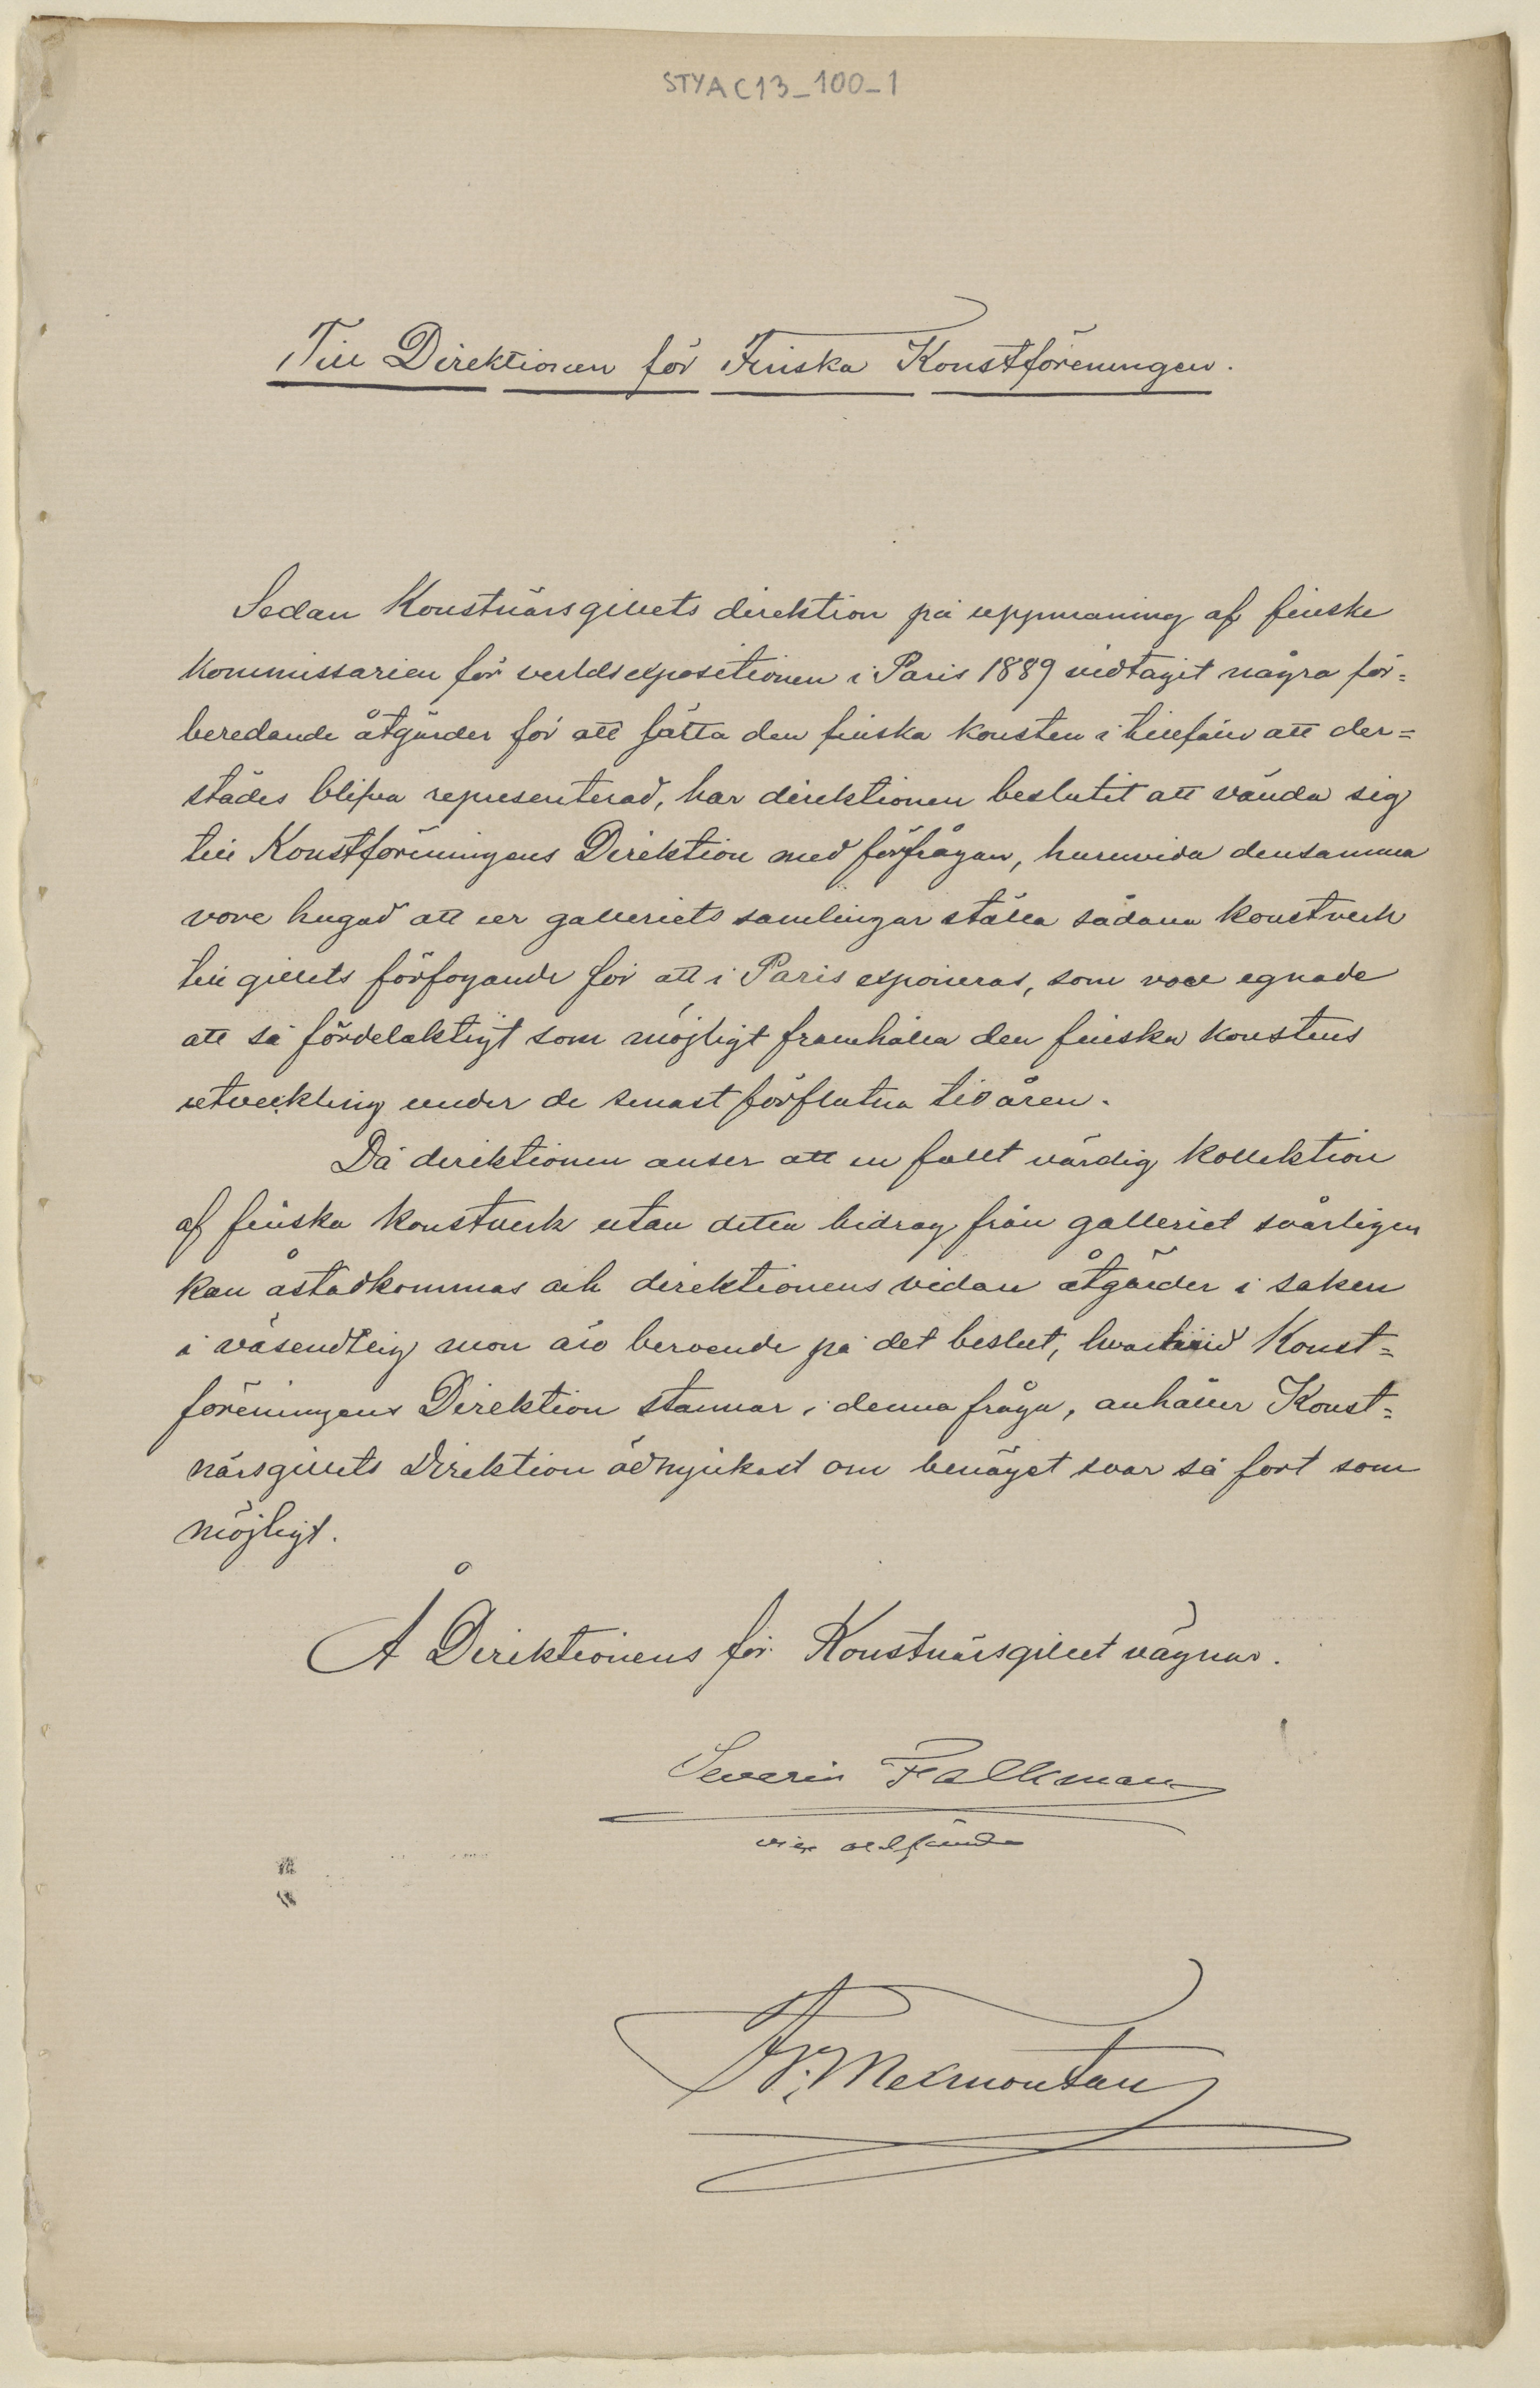 STYA C13_100_1
Till Direktionen för Finska Konstföreningen.
Sedan Konstnärsgillets direktion på uppmaning af finske
kommissarien för verldsexpositionen i Paris 1889 vidtagit några för=
beredande åtgärder för att sätta den finska konsten i tillfälle att der=
städes blifva representerad, har direktionen beslutit att vända sig
till Konstföreningens Direktion med förfrågan, huruvida densamma
vore hugad att ur galleriets samlingar ställa sådana konstverk
till gillets förfogande för att i Paris exponeras, som vore egnade
att så fördelaktigt som möjligt framhålla den finska konstens
utveckling under de senast förflutna tio åren.
Då direktionen anser att en fullt värdig kollektion
af finska konstverk utan detta bidrag från galleriet svårligen
kan åstadkommas och direktionens vidare åtgärder i saken
i väsendtlig mon äro beroende på det beslut, hvartill Konst=
föreningens Direktion stannar i denna fråga, anhåller Konst=
närsgillets Direktion ödmjukast om benäget svar så fort som
möjligt.
Å Direktionens för Konstnärsgillet vägnar.
Severin Falkman
vice ordförande
Mexmontan